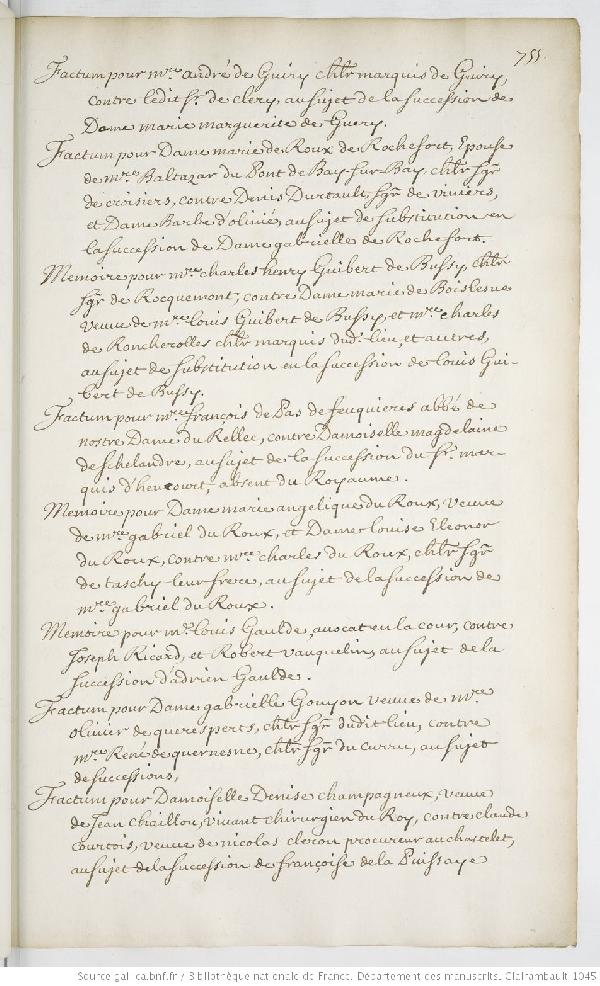 755.
Factum pour mre andré de Guiry chlr marquis de Guiry,
contre ledit sr. de clery, au sujet de la succession de
Dame marie marguerite de Guery.
Factum pour Dame marie de Roux de Rochefort, Epouse
de mre Baltazar du Pont de Bay sur Bay, chlr sgr
de crisiers, contre Denis Durtault, sgr de viviers,
et Dame Barbe d'olinie, au sujet de substitution en
la succession de Dame gabrielle de Rochefort.
Memoire pour mre charles henry Guibert de Bussy, chlr
sgr de Rocquemont, contre Dame marie de Boislesue
veuve de mre louis Guibert de Bussy, et mre charles
de Roncherolles chlr marquis dud. lieu, et autres,
au sujet de substitution en la succession de louis Gui-
bert de Bussy.
Factum pour mre françois de Pas de feuquieres abbé de
nostre Dame du Rellec, contre Damoiselle magdelaine
de schelandre, au sujet de la succession du sr. mar-
quis d'heucourt, absent du Royaume.
Memoire pour Dame marie angelique du Roux, veuve
de mre gabriel du Roux, et Dame louise Eleonor
du Roux, contre mre charles du Roux, chlr sgr
de taschy leur frere, au sujet de la succession de
mre gabriel du Roux.
Memoire pour me louis Gaulde, avocat en la cour, contre
Joseph Ricard, et Robert vauquelin, au sujet de la
succession d'adrien Gaulde.
Factum pour Dame gabrielle Gouyon veuve de mre
olivier de queresperts, chlr sgr dudit lieu, contre
mre René de quernesne, chlr sgr du curru, au sujet
de successions,
Factum pour Damoiselle Denise champagneux, veuve
de Jean chaillou, vivant chirurgien du Roy, contre claude
courtois, veuve de nicolas procureur au chastelet,
au sujet de la succession de françoise de la Puissaye
Source gallica.bnf.fr / Bibliothèque nationale de France. Département des manuscrits. Clairambault 1045